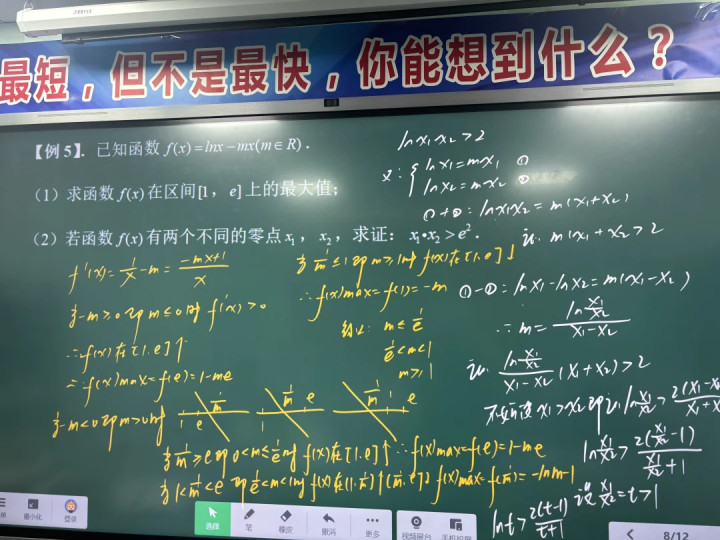 最短，但不是最快，你能想到什么？
【例5】. 已知函数 f(x)=lnx-mx(m∈R).
(1) 求函数 f(x) 在区间[1, e]上的最大值；
(2) 若函数 f(x) 有两个不同的零点 x₁, x₂, 求证: x₁•x₂>e².
f'(x)=1/x-m=(-mx+1)/x
当-m≥0即m≤0时 f'(x)>0
∴f(x)在[1.e]↑
∴f(x)max=f(e)=1-me
当-m<0即m>0时
1 e 1/m
1 1/m e
1/m 1 e
当1/m≤1即m≥1时f(x)在[1.e]↓
∴f(x)max=f(1)=-m
综上: m≤1/e
1/e<m<1
m≥1
当1/m≥e即0<m≤1/e时f(x)在[1.e]↑∴f(x)max=f(e)=1-me
当1<1/m<e即1/e<m<1时f(x)在(1.1/m)↑(1/m.e)↓f(x)max=f(1/m)=-lnm-1
lnx₁x₂>2
又:{lnx₁=mx₁ ①
lnx₂=mx₂ ②
①+②:lnx₁x₂=m(x₁+x₂)
证 m(x₁+x₂)>2
①-②:lnx₁-lnx₂=m(x₁-x₂)
∴m=ln(x₁/x₂)/(x₁-x₂)
证 ln(x₁/x₂)/(x₁-x₂)(x₁+x₂)>2
不妨设x₁>x₂即证ln(x₁/x₂)>2(x₁-x₂)/(x₁+x
ln(x₁/x₂)>2(x₁/x₂-1)/(x₁/x₂+1)
设x₁/x₂=t>1
lnt>2(t-1)/(t+1)
单
最小化
登录
选择
笔
橡皮
撤消
更多
视频展台
手机投屏
< 8/12